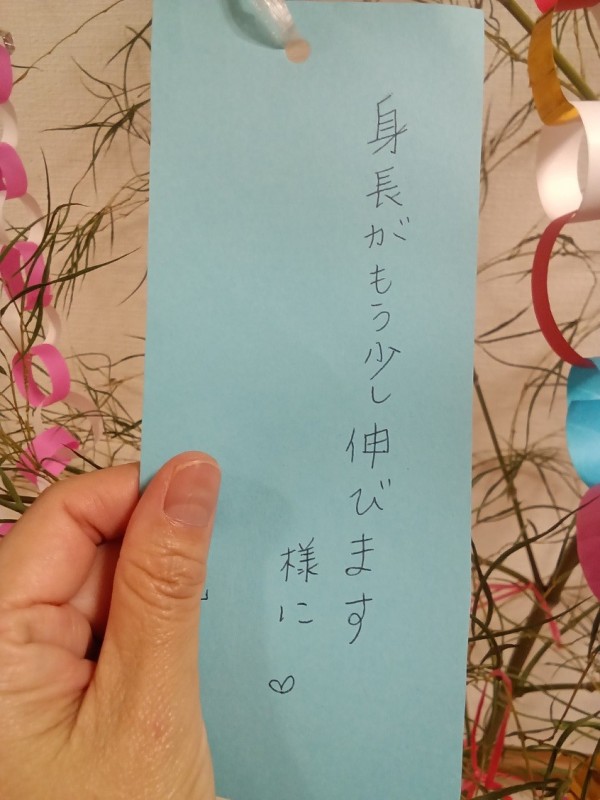 身長がもう少し伸びます
様に♡